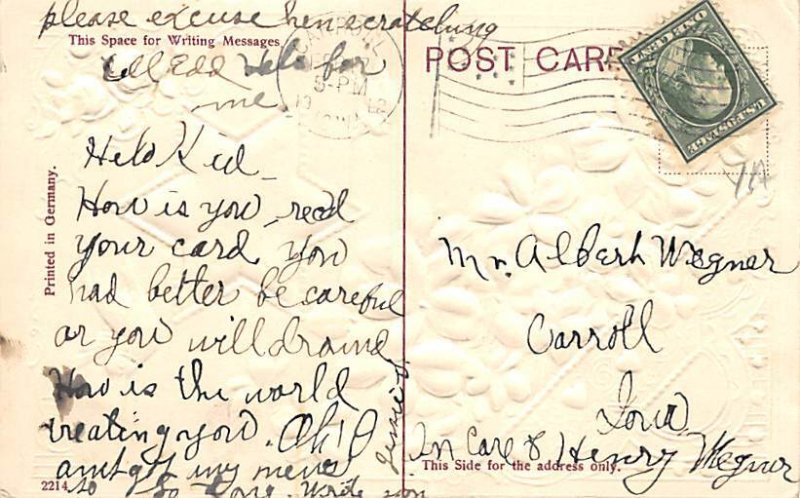 please excuse hen scratching
This Space for Writing Messages
tell Edd helo for
me.
Helo Kid_
How is you, recd
your card, you
had better be careful
or you will dround
How is the world
treating you. Oh! I
aint got my mew
so So long. Write soon
Jessie
Printed in Germany.
2214
5-PM
POST CARD
Mr. Albert Wegner
Carroll
Iowa
In Care of Henry Wegner
This Side for the address only.